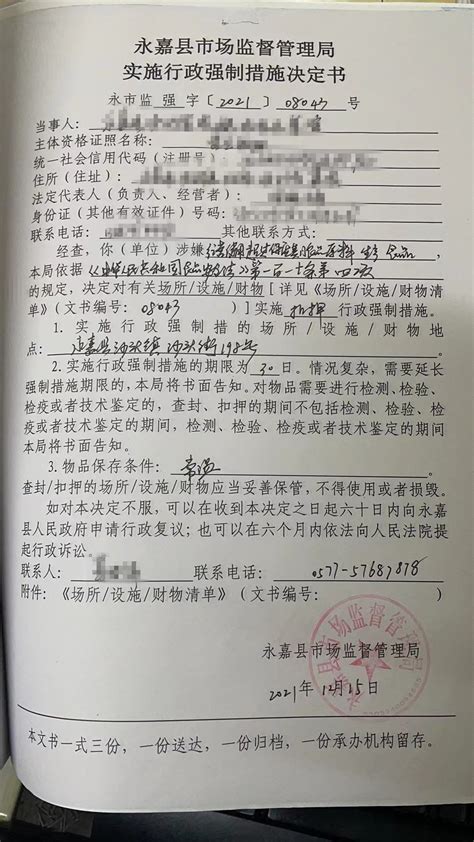 永嘉县市场监督管理局
实施行政强制措施决定书
永市监 强 字〔2021〕 08043 号
当事人：
主体资格证照名称：
统一社会信用代码（注册号）：
住所（住址）：
法定代表人（负责人、经营者）：
身份证（其他有效证件）号码：
联系电话： 其他联系方式：
经查，你（单位）涉嫌
本局依据《中华人民共和国食品安全法》第一百一十条第四项
的规定，决定对有关场所/设施/财物［详见《场所/设施/财物清
单》（文书编号： 08043 ）］实施 扣押 行政强制措施。
1. 实施行政强制措的场所/设施/财物地
点： 永嘉县沙头镇沙头街198号
2. 实施行政强制措施的期限为 30 日。情况复杂，需要延长
强制措施期限的，本局将书面告知。对物品需要进行检测、检验、
检疫或者技术鉴定的，查封、扣押的期间不包括检测、检验、检
疫或者技术鉴定的期间，检测、检验、检疫或者技术鉴定的期间
本局将书面告知。
3. 物品保存条件： 常温
查封/扣押的场所/设施/财物应当妥善保管，不得使用或者损毁。
如对本决定不服，可以在收到本决定之日起六十日内向永嘉
县人民政府申请行政复议；也可以在六个月内依法向人民法院提
起行政诉讼。
联系人： 联系电话： 0577-57687878
附件：《场所/设施/财物清单》（文书编号： ）
永嘉县市场监督管理局
2021年12月15日
本文书一式三份，一份送达，一份归档，一份承办机构留存。